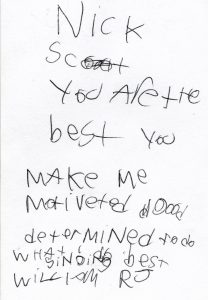 Nick
Scott
You Are the
best You
MAKE Me
Motiveted
determined to do
WHAT best
William RJ